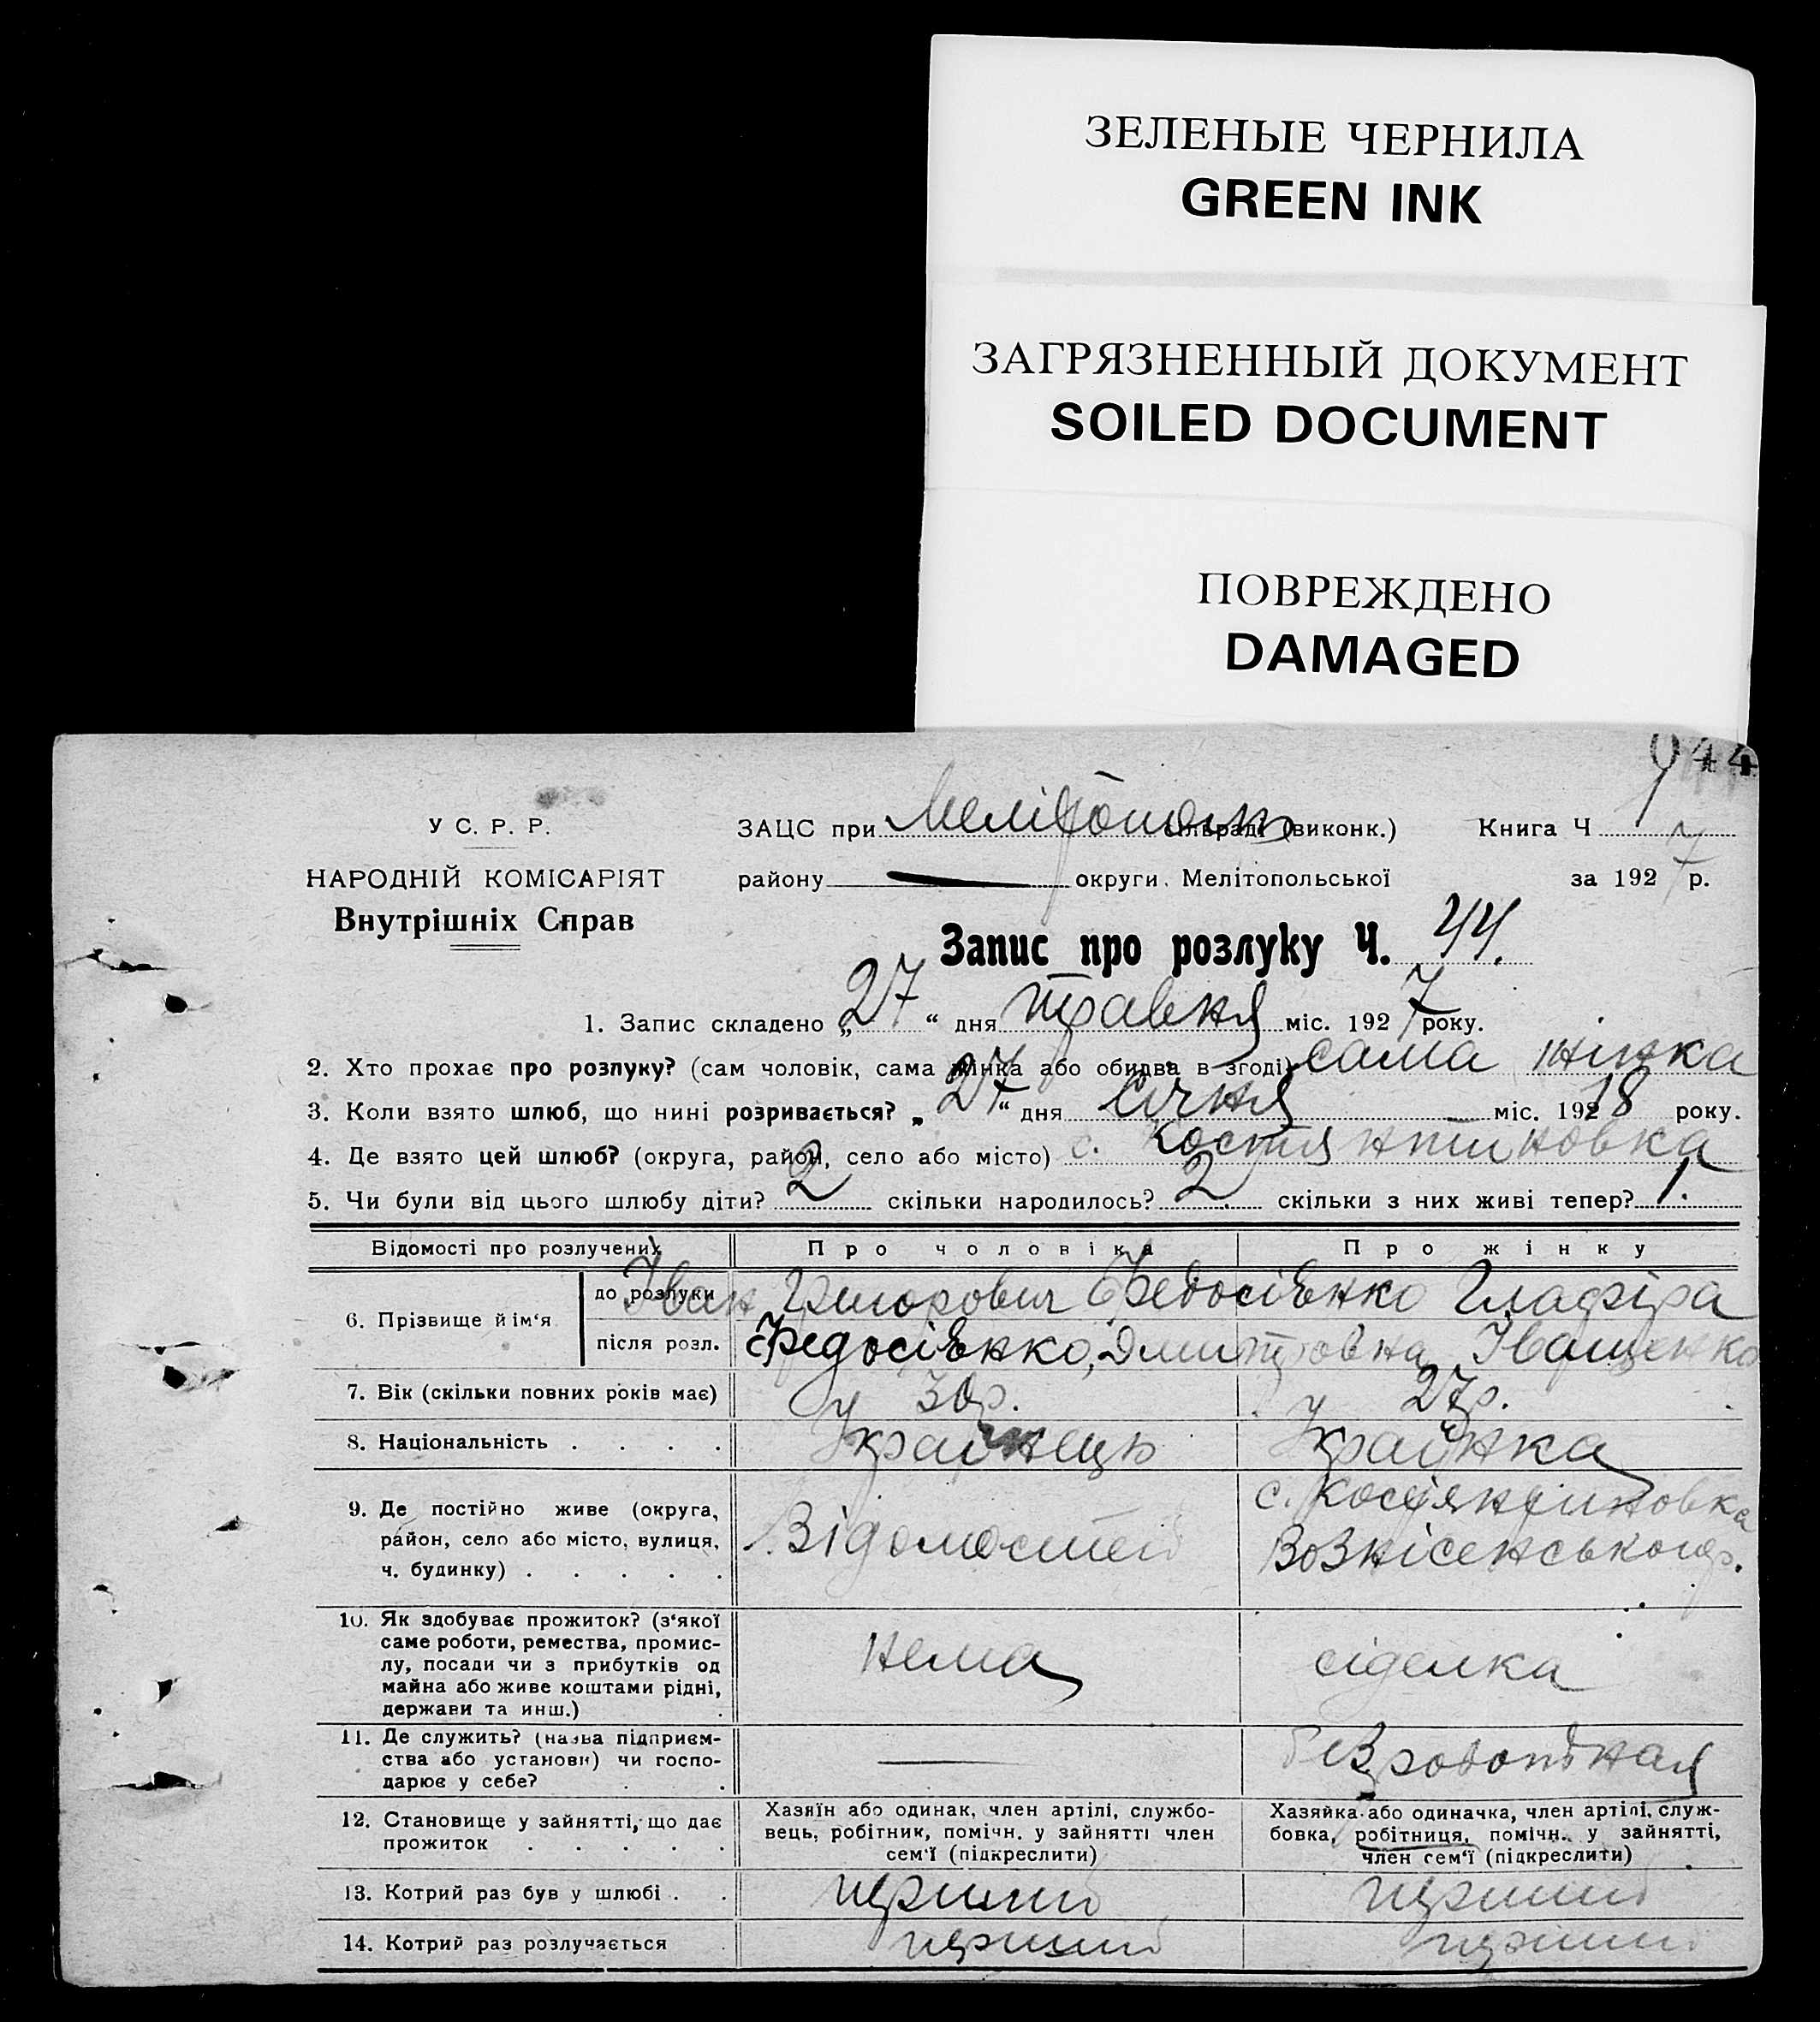 ЗЕЛЕНЫЕ ЧЕРНИЛА
GREEN INK
ЗАГРЯЗНЕННЫЙ ДОКУМЕНТ
SOILED DOCUMENT
ПОВРЕЖДЕНО
DAMAGED
044
У С. Р. Р.
НАРОДНІЙ КОМІСАРІЯТ
Внутрішніх Справ
ЗАЦС при Мелітополь сільраді (виконк.) Книга Ч
району округи. Мелітопольської за 1927 р.
Запис про розлуку Ч. 44.
1. Запис складено „27“ дня травня міс. 1927 року.
2. Хто прохає про розлуку? (сам чоловік, сама жінка або обидва в згоді) сама жінка
3. Коли взято шлюб, що нині розривається? „27“ дня Січня міс. 19218 року.
4. Де взято цей шлюб? (округа, район, село або місто) с. Костянтиновка
5. Чи були від цього шлюбу діти? 2 скільки народилось? 2 скільки з них живі тепер? 1.
Відомості про розлучених Про чоловіка Про жінку
6. Прізвище й ім‘я до розлуки Іван Григорович Федосієнко Глафіра
після розл. Федосієнко, Дмитровна Іващенко
7. Вік (скільки повних років має) у 30р. у 27р.
8. Національність . . . . Українець Українка
9. Де постійно живе (округа, район, село або місто, вулиця, ч. будинку) . . . . . Відомостей с. Костянтиновка
Вознісенського р.
10. Як здобуває прожиток? (з‘якої саме роботи, ремества, промислу, посади чи з прибутків од майна або живе коштами рідні, держави та инш.) нема сіделка
11. Де служить? (назва підприємства або установи) чи господарює у себе? — безроботная
12. Становище у зайнятті, що дає прожиток . . . . .
Хазяїн або одинак, член артілі, службовець, робітник, помічн. у зайнятті член сем‘ї (підкреслити)
Хазяйка або одиначка, член артілі, службовка, робітниця, помічн. у зайнятті, член сем‘ї (підкреслити)
13. Котрий раз був у шлюбі . . перший перший
14. Котрий раз розлучається перший перший